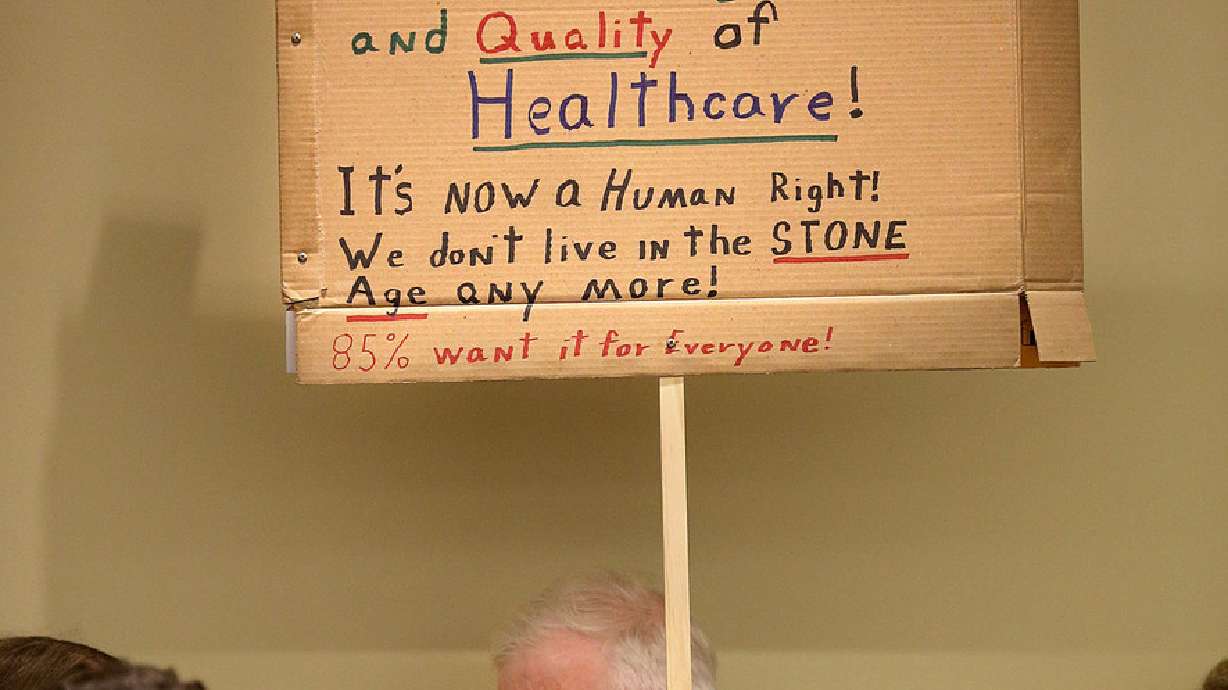 and Quality of
Healthcare!
It's NOW a HUMAN Right!
We don't live IN the STONE
Age ANY More!
85% want it for Everyone!